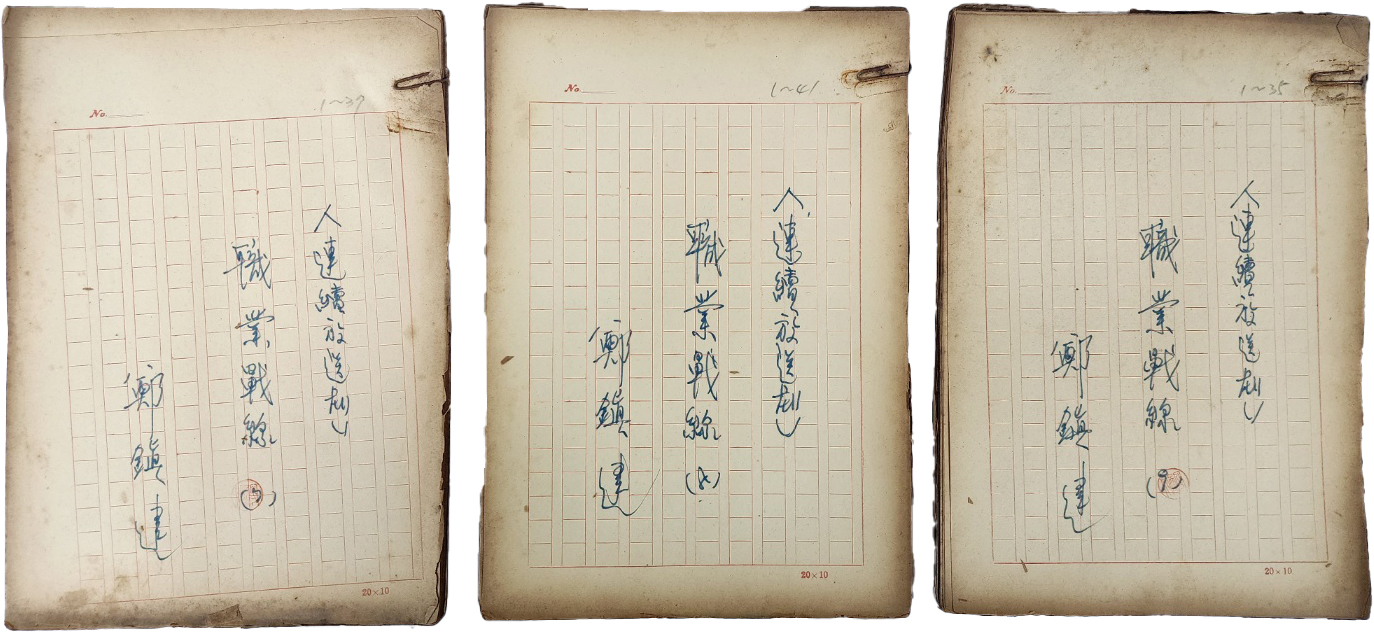 No.
1~37
〈連續放送劇〉
職業戰線
鄭鎮建
20×10
No.
1~41
〈連續放送劇〉
職業戰線 (8)
鄭鎮建
20×10
No.
1~35
〈連續放送劇〉
職業戰線 (9)
鄭鎮建
20×10